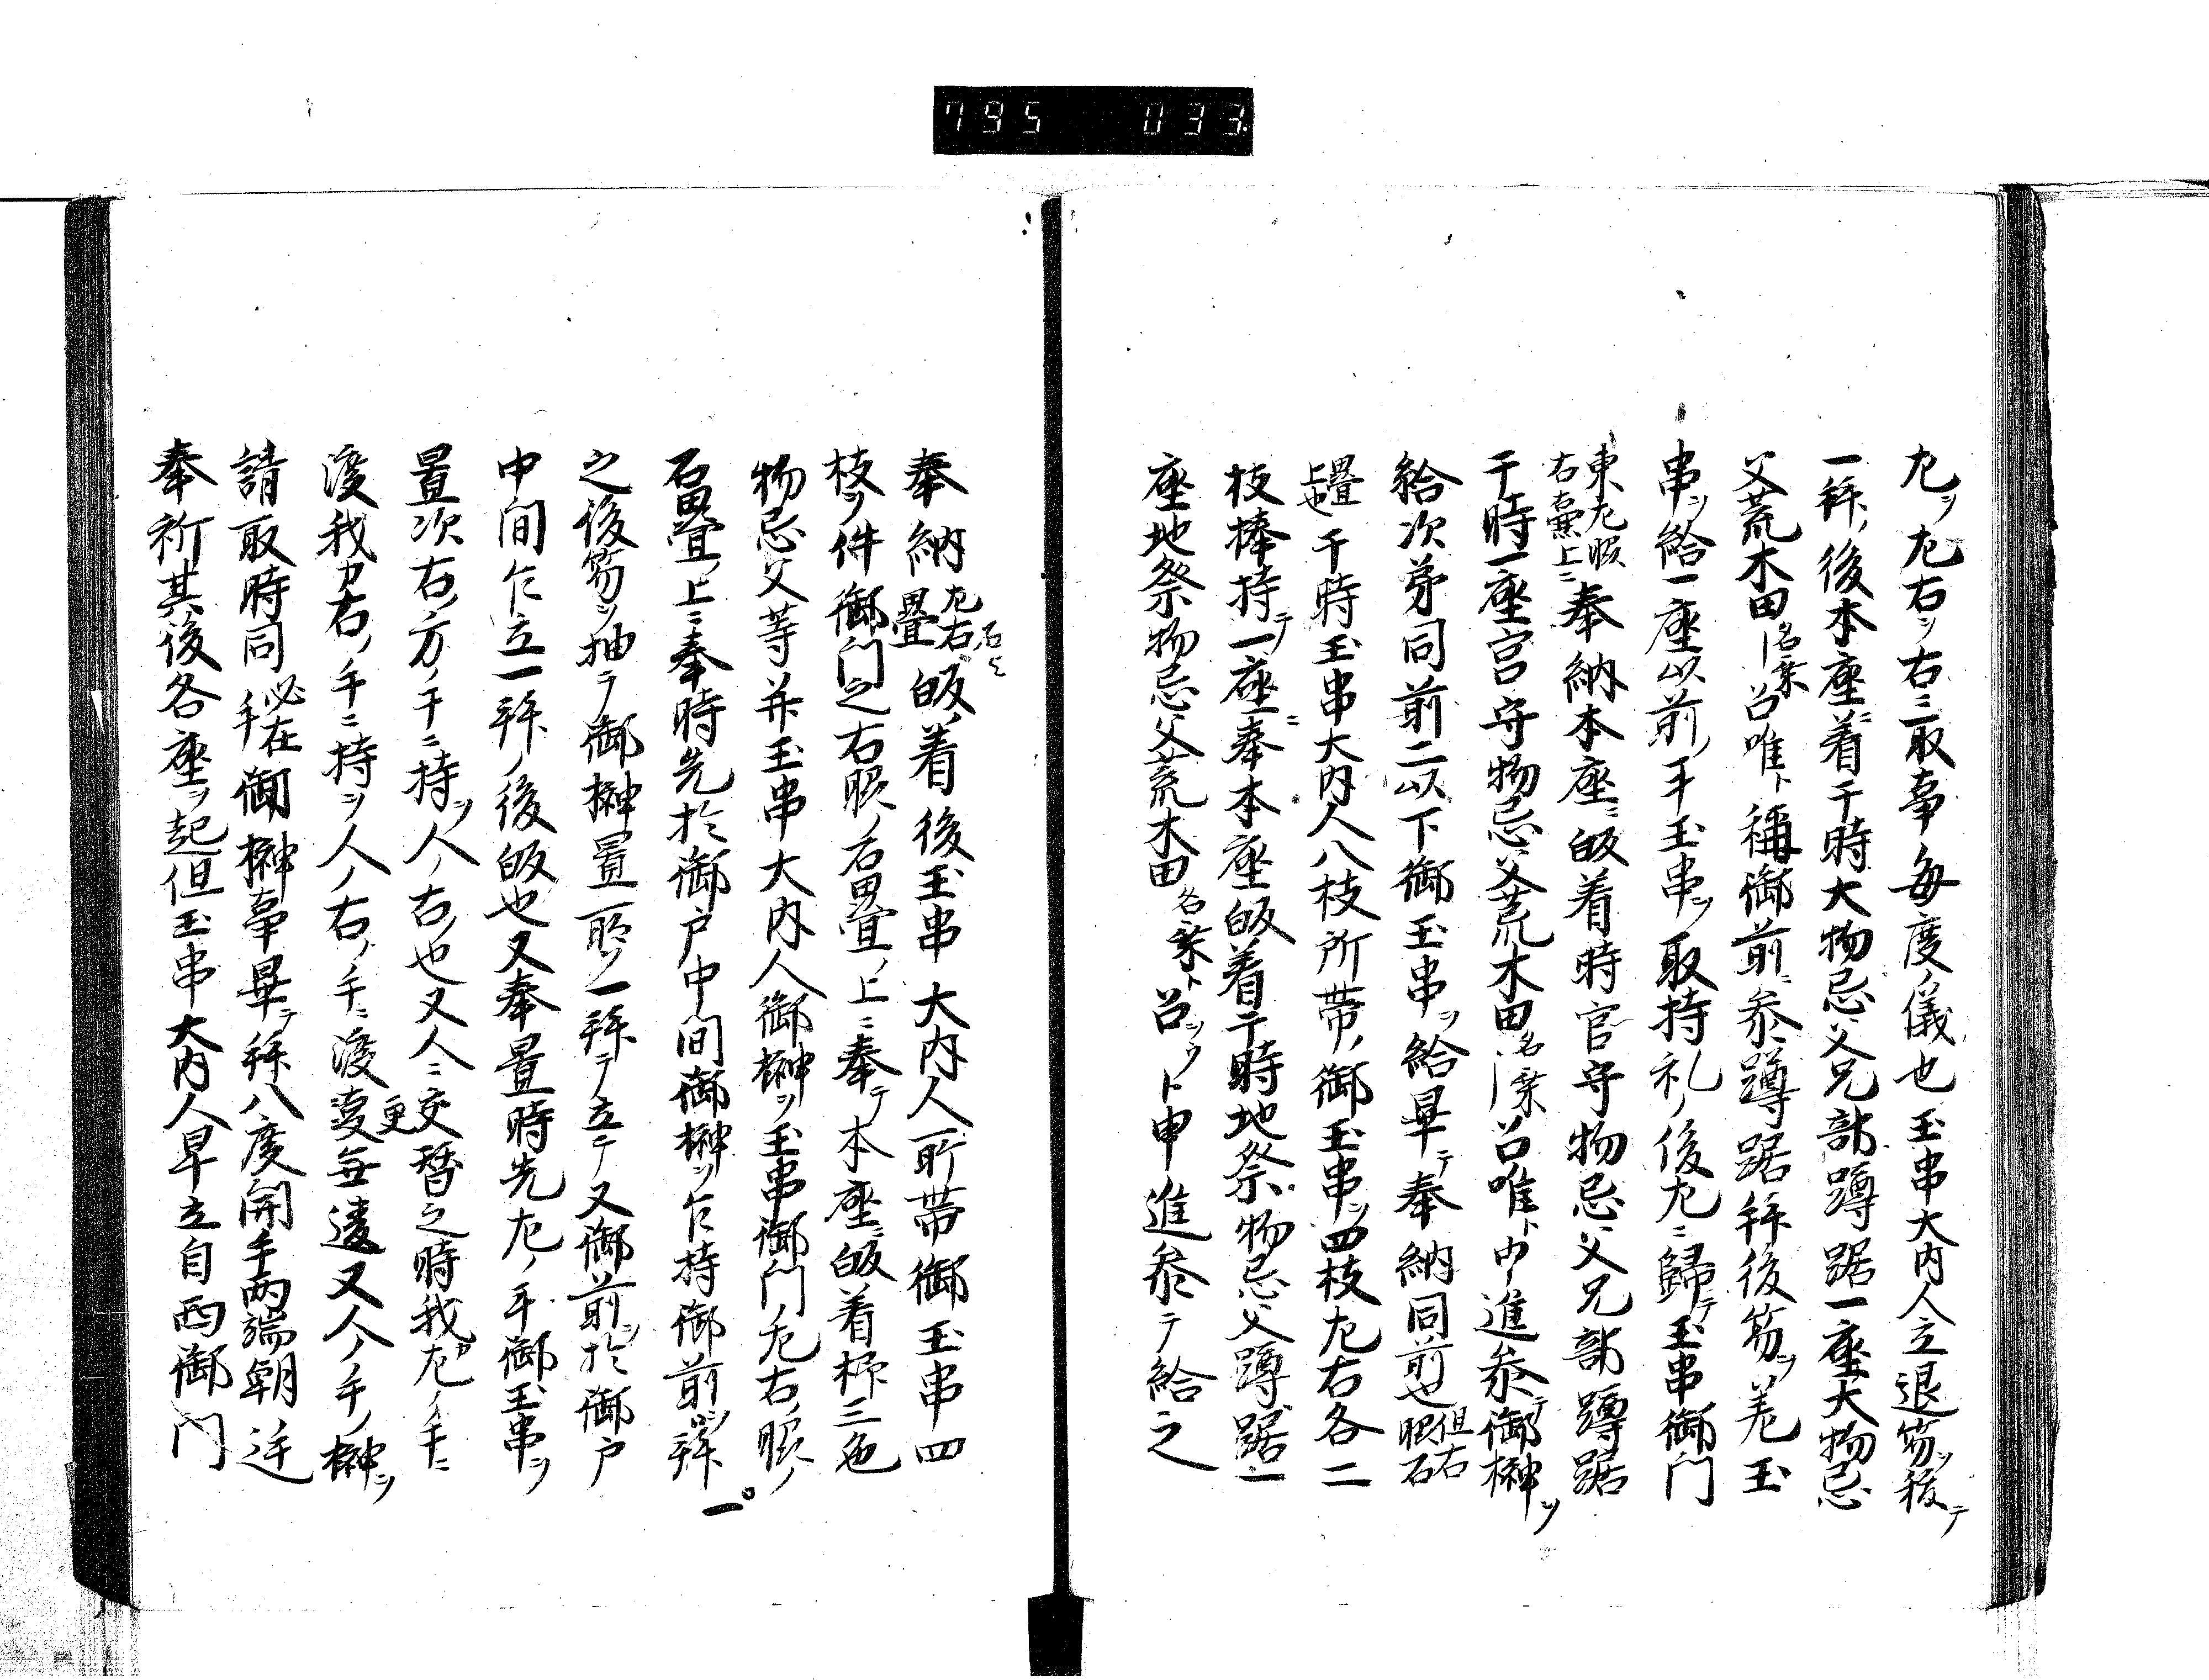 795 033
左ヲ左右ヲ右ニ取事毎度ノ儀也玉串大内人立退笏ヲ移テ
一拜ノ後本座着于時大物忌父兄部蹲踞一座大物忌
父荒木田名乗召唯ト稱御前ニ参蹲踞拜後笏ヲ差玉
串ヲ給一座以前ノ手玉串ヲ取持礼ノ後左ニ歸テ玉串御門
東左腋
右疊上ニ奉納本座ニ皈着時宮守物忌父兄部蹲踞
于時一座宮守物忌父荒木田名乗召唯ト申進参テ御榊ヲ
給次第同前二以下御玉串ヲ給畢テ奉納同前也但右腋石
疊上也于時玉串大内人八枝所帶ノ御玉串ヲ四枝左右各二
枝捧持テ一座ニ奉本座皈着于時地祭物忌父蹲踞一
座地祭物忌父荒木田名乗ト召ヲウト申進参テ給之
奉納左右石疊皈着後玉串大内人所帶御玉串四
枝ヲ件御門之右腋ノ石疊ノ上ニ奉テ本座ニ皈着抑三色
物忌父等并玉串大内人御榊ヲ玉串御門左右ノ腋ノ
石疊ノ上ニ奉時先於御戸中間御榊ヲ乍持御前ヲ拜一
之後笏ヲ抽テ御榊置所ヲ一拜テ立テ又御前ヲ於御戸
中間乍立一拜ノ後皈也又奉置時先左ノ手御玉串ヲ
置次右ノ方ノ手ニ持ヲ人ノ右也又人ニ交替之時我左ノ手ニ
渡我カ右ノ手ニ持ヲ人ノ右ノ手ニ渡更毎違又人ノ手ノ榊ヲ
請取時同手必在御榊事畢テ拜八度開手両端朝廷
奉祈其後各座ヲ起但玉串大内人早立自西御門